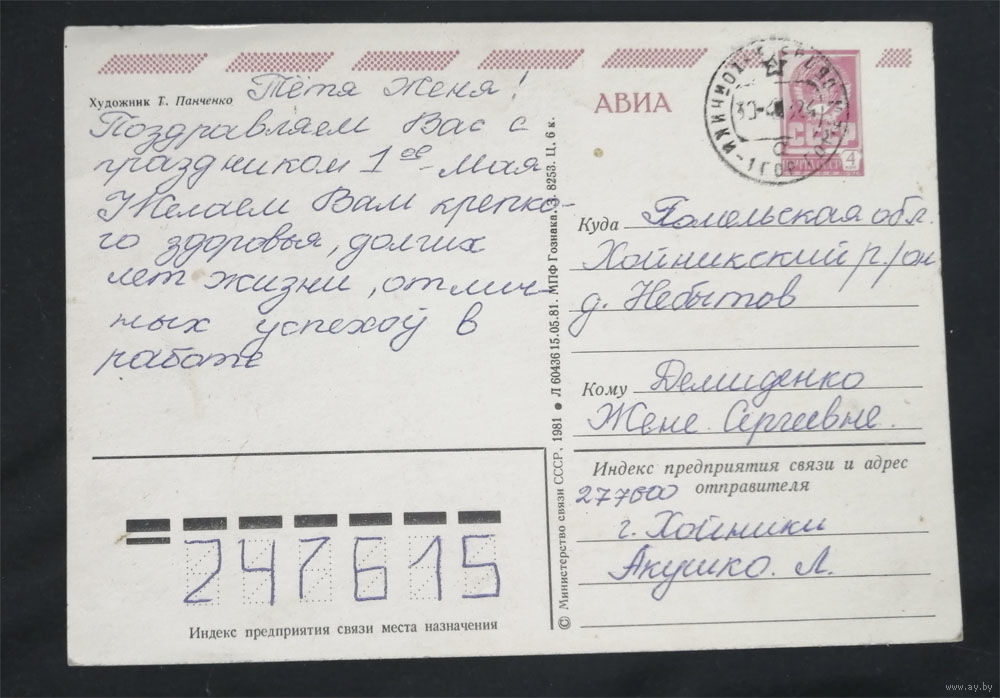 Художник Т. Панченко
Тётя Женя!
Поздравляем Вас с
праздником 1ое Мая
Желаем Вам крепко-
го здоровья, долгих
лет жизни, отлич-
ных успехов в
работе
Индекс предприятия связи места назначения
247615
© Министерство связи СССР, 1981 ● Л 60436 15.05.81. МПФ Гознака. З. 8253. Ц. 6 к.
АВИА
СССР
4
Куда Гомельская обл.
Хойникский р/он
д. Небытов
Кому Демиденко
Жене Сергеевне.
Индекс предприятия связи и адрес
отправителя
277600
г. Хойники
Акушко. Л.
www.ay.by